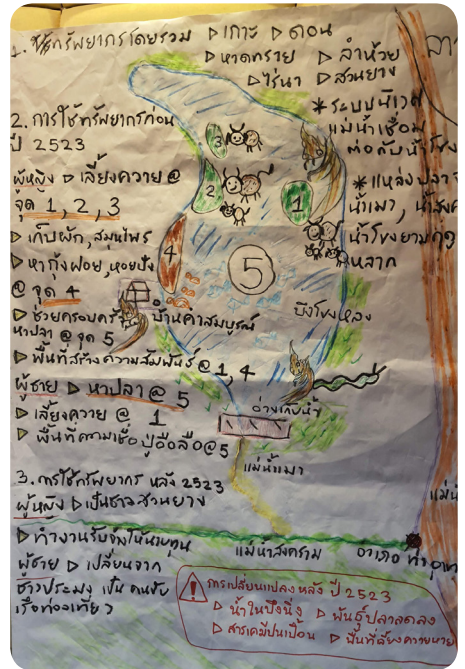 1. ทรัพยากรโดยรวม ▷ เกาะ ▷ ดอน
▷ หาดทราย ▷ ลำห้วย
▷ ไร่นา ▷ สวนยาง
2. การใช้ทรัพยากรก่อน
ปี 2523
ผู้หญิง ▷ เลี้ยงควาย @
จุด 1, 2, 3
▷ เก็บผัก, สมุนไพร
▷ หากุ้งฝอย, หอยปัง
@ จุด 4
▷ ช่วยครอบครัว
หาปลา @ จุด 5
▷ พื้นที่สร้างความสัมพันธ์ @ 1, 4
ผู้ชาย ▷ หาปลา @ 5
▷ เลี้ยงควาย @ 1
▷ พื้นที่ความเชื่อ ปู่อือลือ @ 5
3. การใช้ทรัพยากร หลัง 2523
ผู้หญิง ▷ เป็นชาวสวนยาง
▷ ทำงานรับจ้างให้นายทุน
ผู้ชาย ▷ เปลี่ยนจาก
ชาวประมง เป็น คนขับ
เรือท่องเที่ยว
* ระบบนิเวศ
แม่น้ำเชื่อม
ต่อกับน้ำโขง
* แหล่งปลา
น้ำเมา, น้ำสงค
น้ำโขงยามฤดู
หลาก
3
2
1
4
5
บ้านคำสมบูรณ์
บึงโขงหลง
อ่างเก็บน้ำ
แม่น้ำเมา
แม่น้ำสงคราม
แม่น้ำ
การเปลี่ยนแปลง หลัง ปี 2523
▷ น้ำในบึงนิ่ง ▷ พันธุ์ปลาลดลง
▷ สารเคมีปนเปื้อน ▷ พื้นที่เลี้ยงควายหาย